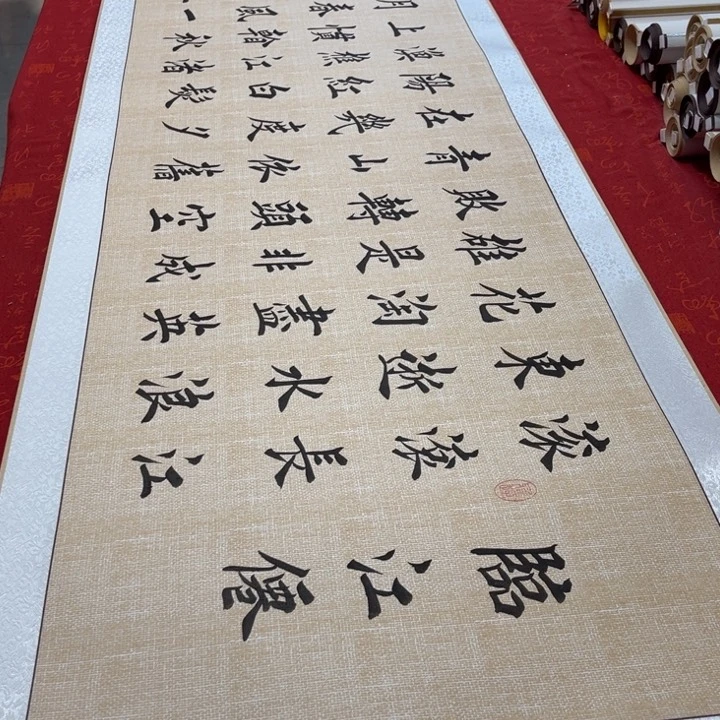 臨江僊
滚滚長江
東逝水浪
花淘盡英
雄是非成
敗轉頭空
青山依舊
在幾度夕
陽紅白髮
漁樵江渚
上慣看秋
月春風一